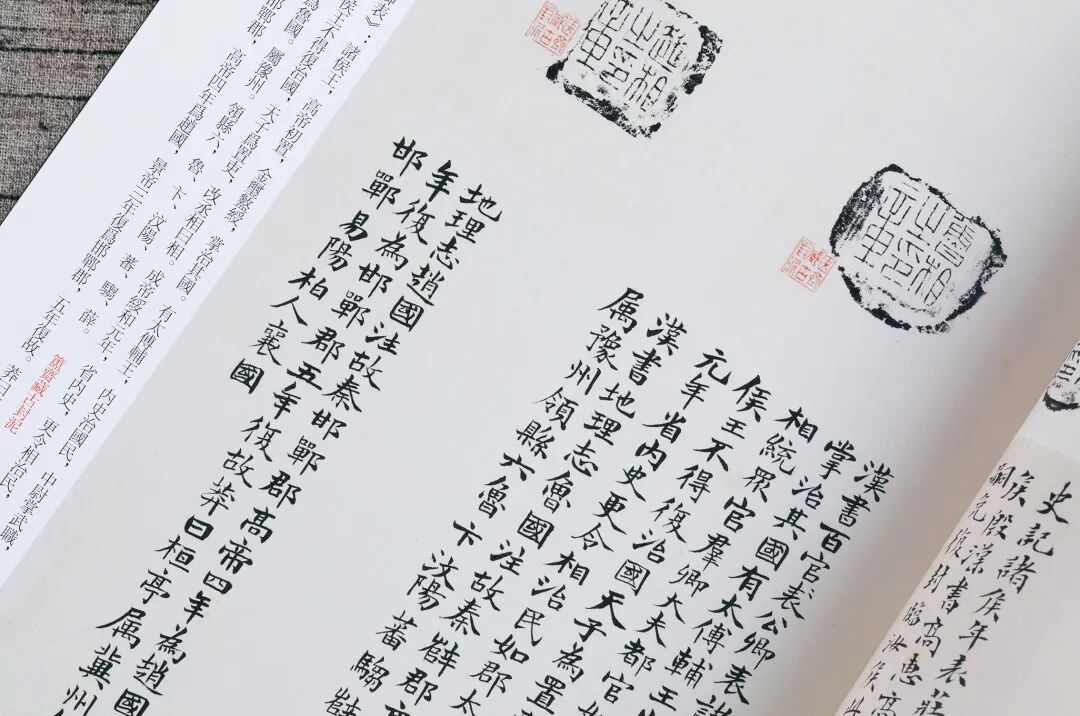 史記諸侯年表莊
侯殷漢書高惠高
嗣免復封臨汝侯
魯相之印章
漢書百官表公卿表諸
掌治其國有太傅輔王
相統眾官羣卿大夫都官如
侯王不得復治國天子為置
元年省內史更令相治民如郡太
漢書地理志魯國注故秦薛郡
属豫州領縣六魯卞汶陽蕃騶薛
趙相之印章
地理志趙國注故秦邯鄲郡高帝四年為趙國
年復為邯鄲郡五年復故莽曰桓亭属冀州
邯鄲易陽柏人襄國
簠齋藏古封泥
表》：諸侯王，高帝初置，金璽盭綬，掌治其國。有太傅輔王，內史治國民，中尉掌武職，
侯王不得復治國，天子爲置吏，改丞相曰相。成帝綏和元年，省內史，更令相治民，
爲魯國。屬豫州。領縣六，魯、卞、汶陽、蕃、騶、薛。
邯鄲郡，高帝四年爲趙國，景帝三年復爲邯鄲郡，五年復故。莽曰